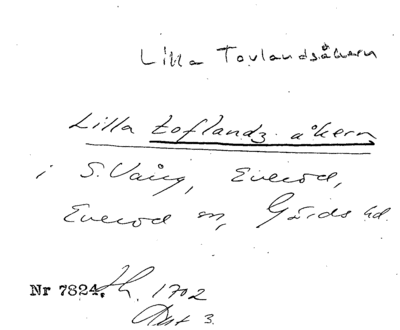 Lilla Tovlandsåkern
Lilla toflandz åkern
i S. Vång, Everöd,
Everöd sn, Gärds hd.
Nr 7824, Lh. 1702
Akt 3.